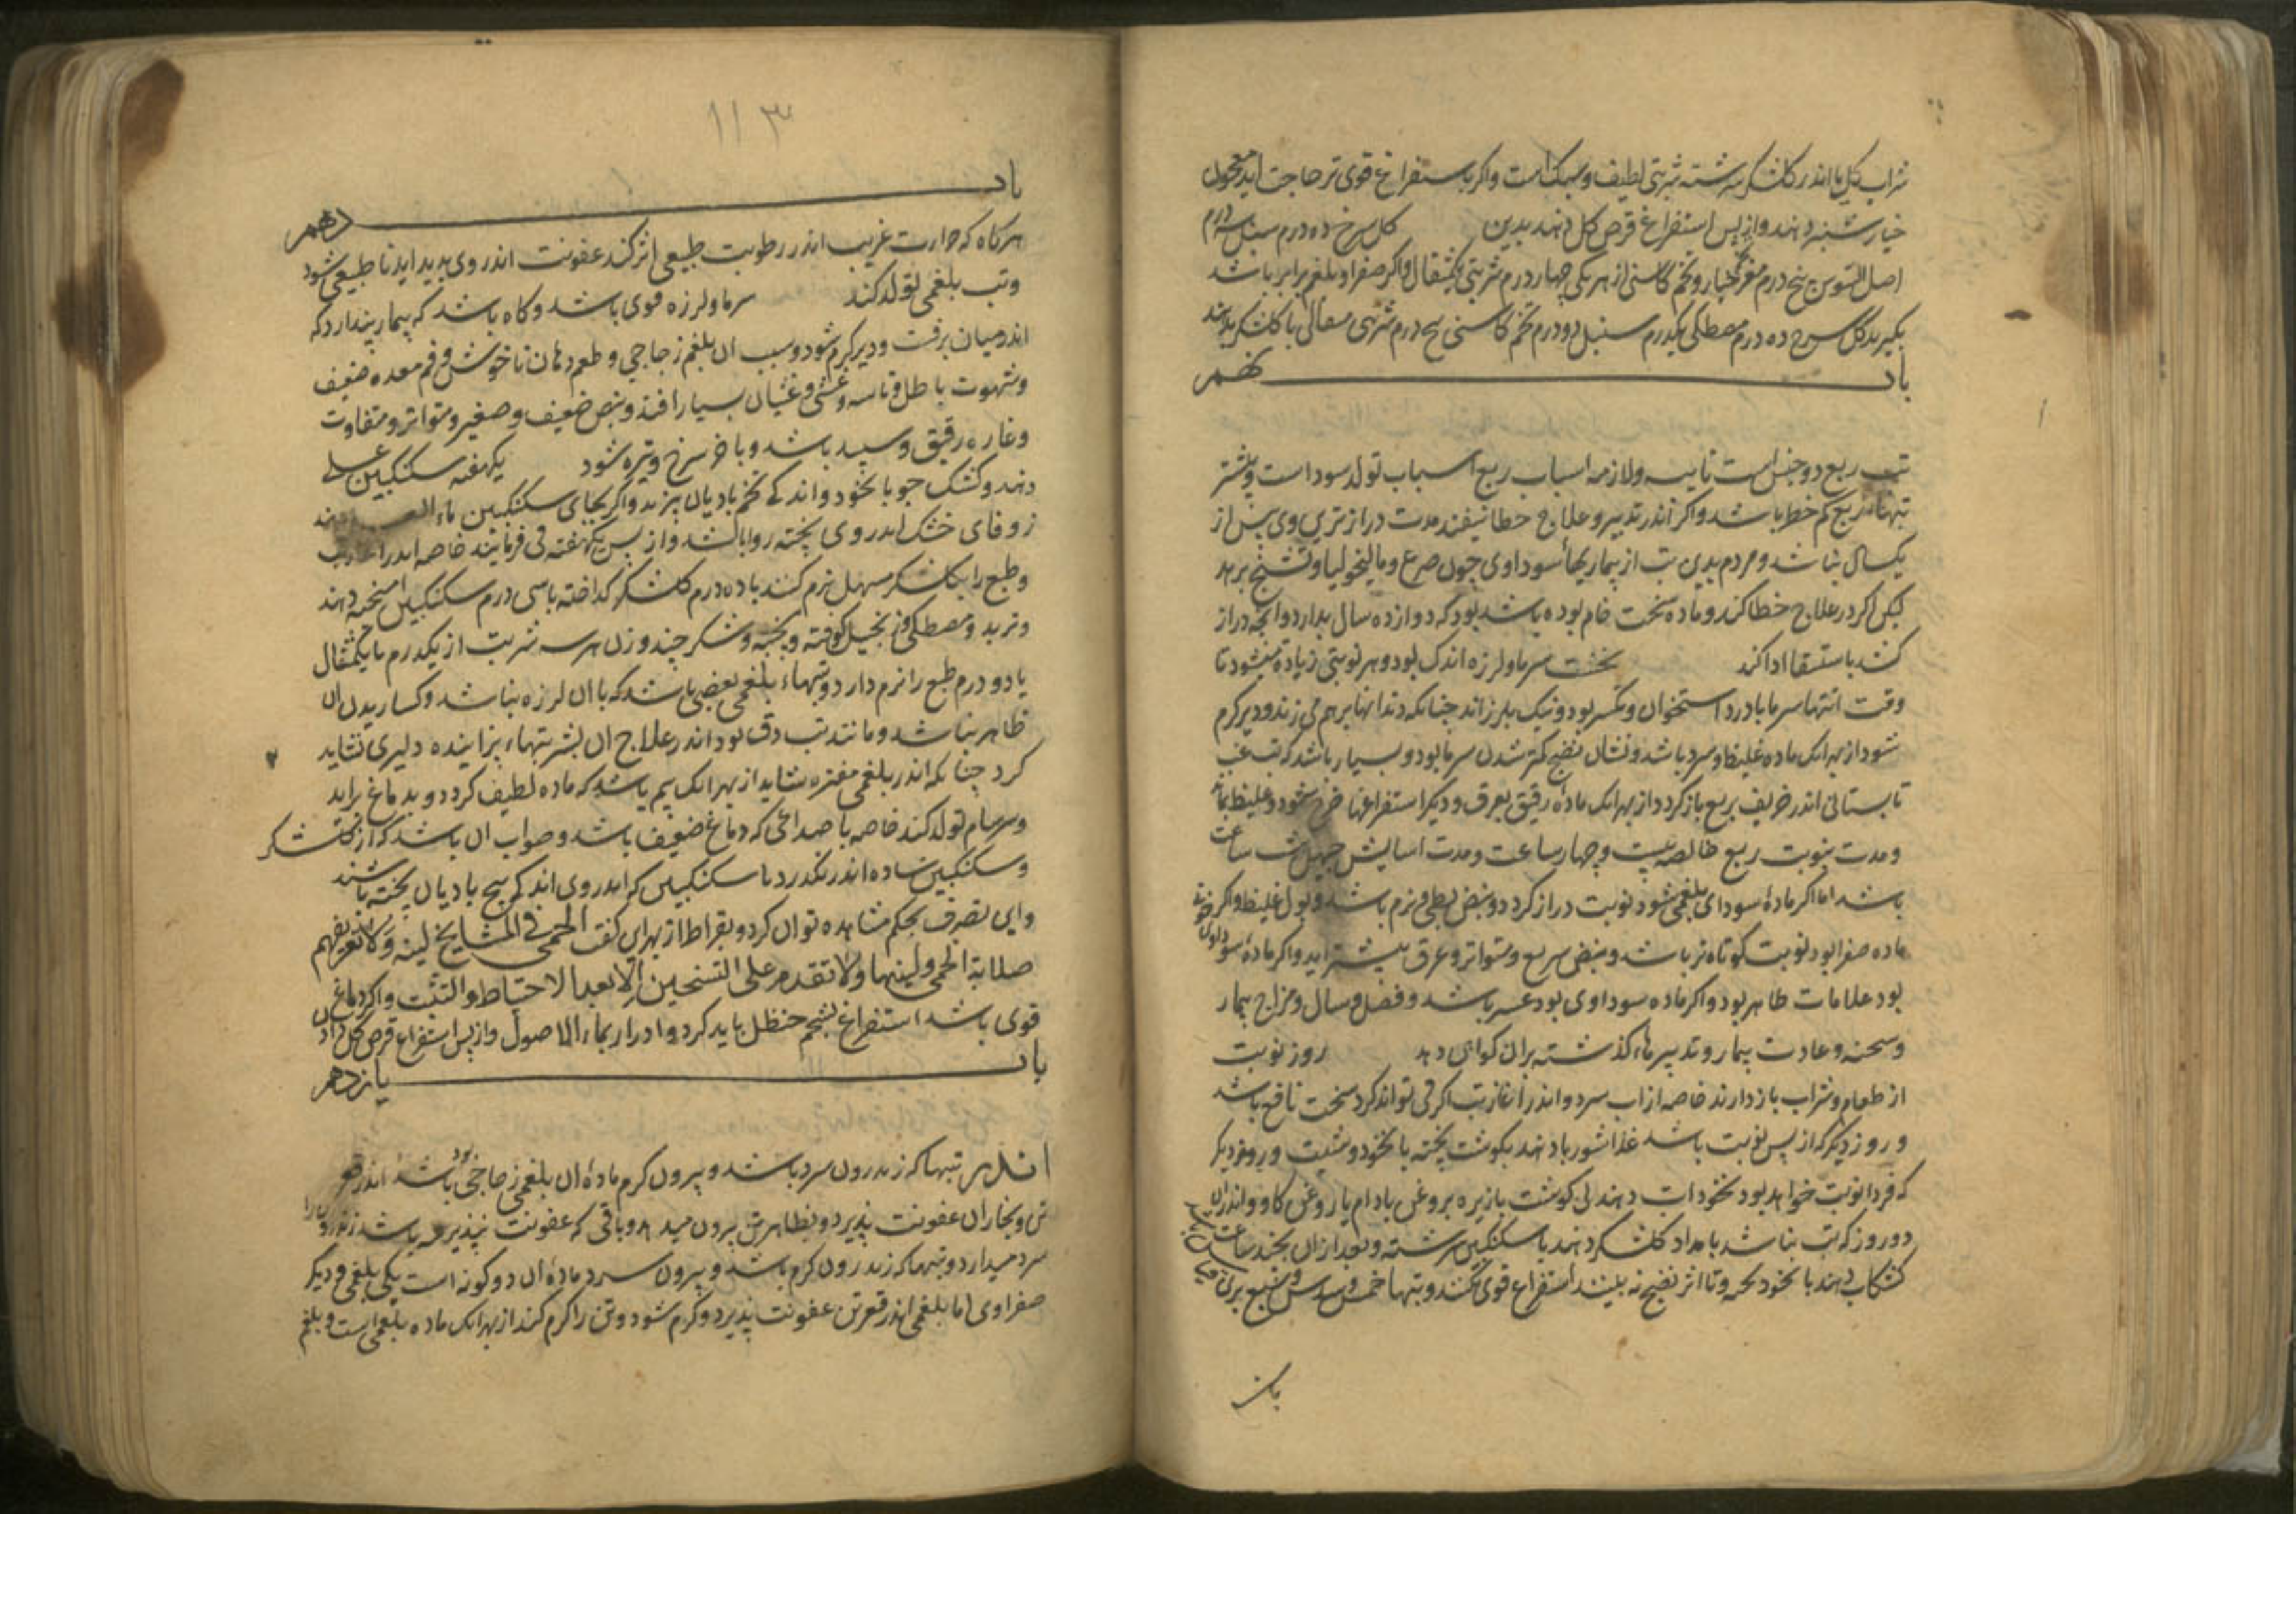 شراب کل یا اندر کلشکر سرشته شربتی لطیف و سبک است و اکر باستفراغ قوی تر حاجت اید معجون
خیارشنبر دهند و از پس استفراغ قرص کل دهند بدین کل سرخ ده درم سنبل سه درم
اصل السوس پنج درم مغز تخم خیار و تخم کاسنی از هر یکی چهار درم شربتی یکمثقال و اکر صفرا و بلغم برابر باشد
بکیرند کل سرخ ده درم مصطکی یکدرم سنبل دو درم تخم کاسنی پنج درم شربتی مثقالی با کلشکر بدهند
باب نهم
تب ربع دو جنس است نایبه و لازمه اسباب ربع اسباب تولد سودا است و بیشتر
تبهاء ربع کم خطر باشد و اکر اندر تدبیر و علاج خطا نیفتد مدت درازتری وی بیش از
یکسال نباشد و مردم بدین تب از بیماریهاء سوداوی چون صرع و مالیخولیا و تشنج برهد
لیکن اکر در علاج خطا کنند و ماده سخت خام بوده باشد بود که دوازده سال بدارد و انجه دراز
کشد باستسقا ادا کند نخست سرما و لرزه اندک بود و هر نوبتی زیاده میشود تا
وقت انتها سرما با درد استخوان و تکسر بود و نیک بلرزاند جنانکه دندانها برهم می زند و دیر کرم
شود از بهر انک ماده غلیظ و سرد باشد و نشان نضج کمتر شدن سرما بود و بسیار باشد که تب غب
تابستانی اندر خریف بربع باز کردد از بهر انک ماده رقیق بعرق و دیکر استفراغها خرج شود و غلیظ بماند
و مدت نوبت ربع خالصه بیست و چهار ساعت و مدت اسایش چهل و هشت ساعت
باشد اما اکر ماده سودای بلغمی شود نوبت دراز کردد و نبض بطی و نرم باشد و بول غلیظ و اکر
ماده صفرا بود نوبت کوتاه تر باشد و نبض سریع و متواتر و عرق بیشتر اید و اکر ماده سوداوی
بود علامات ظاهر بود و اکر ماده سوداوی بود عسر باشد و فصل و سال و مزاج بیمار
و سحنه و عادت بیمار و تدبیرهاء کذشته بران کواهی دهد روز نوبت
از طعام و شراب باز دارند خاصه از اب سرد و اندر اغاز تب اکر قی تواند کرد سخت نافع باشد
و روز دیکر که از پس نوبت باشد غذا شوربا دهند بکوشت پخته با نخود و شبت و روز دیکر
که فردا نوبت خواهد بود نخوداب دهند بی کوشت با زیره بروغن بادام یا روغن کاو و اندران
دو روز که تب نباشد بامداد کلشکر دهند با سکنکبین سرشته و بعد از ان بچند ساعت
کشکاب دهند با نخود پخته و تا اثر نضج نه بینند استفراغ قوی نکنند و تبها خمس و سدس و سبع برین
۱۱۳
باب دهم
هرکاه که حرارت غریب اندر رطوبت طبیعی اثر کند عفونت اندر وی پدید اید نا طبیعی شود
و تب بلغمی تولد کند سرما و لرزه قوی باشد و کاه باشد که بیمار پندارد که
اندر میان برفست و دیر کرم شود و سبب ان بلغم زجاجی و طعم دهان ناخوش و فم معده ضعیف
و شهوت باطل و تاسه و غشی و غثیان بسیار افتد و نبض ضعیف و صغیر و متواتر و متفاوت
و قاروره رقیق و سپید باشد و باخر سرخ و تیره شود یکهفته سکنکبین عسلی
دهند و کشک جو با نخود و اندکی تخم بادیان پزند و اکر بجای سکنکبین ماء العسل دهند
زوفای خشک اندر وی پخته روا باشد و از پس یکهفته قی فرمایند خاصه اندر
و طبع را بکلشکر مسهل نرم کنند با ده درم کلشکر کداخته با سی درم سکنکبین امیخته دهند
و تربد و مصطکی و زنجبیل کوفته و بیخته و شکر چند وزن هر سه شربت از یکدرم تا یکمثقال
یا دو درم طبع را نرم دارد و تبهاء بلغمی بعضی باشد که با ان لرزه نباشد و کساریدن ان
ظاهر نباشد و مانند تب دق بود اندر علاج ان بشربتهاء بزاینده دلیری نشاید
کرد چنانکه اندر بلغمی مفتره شاید از بهر انک بیم باشد که ماده لطیف کردد و بدماغ براید
و سرسام تولد کند خاصه با صداعی که دماغ ضعیف باشد و صواب ان باشد که از کلشکر
و سکنکبین ساده اندر نکذرد تا سکنکبین که اندر وی اندکی بیخ بادیان پخته باشند
و این تصرف بحکم مشاهده توان کرد و بقراط از بهر این کفت الحمی فی المشایخ لینه ولا تعرفهم
صلابة الحمی و لینها ولا تقدم علی التسخین الا بعد الاحتیاط و التثبت و اکر دماغ
قوی باشد استفراغ بشحم حنظل باید کرد و ادرار بماء الاصول و از پس استفراغ قرص کل داد
باب یازدهم
اندر تبها که زندرون سرد باشد و بیرون کرم ماده ان بلغمی زجاجی باشد اندر قعر
تن و بخار ان عفونت پذیرد و بظاهر تن بیرون میدهد و باقی که عفونت نپذیرفته باشد زندرون را
سرد میدارد و تبها که زندرون کرم باشد و بیرون سرد ماده ان دو کونه است یکی بلغمی و دیکر
صفراوی اما بلغمی اندر قعر تن عفونت پذیرد و کرم شود و تن را کرم کند از بهر انک ماده بلغمی است و بلغم